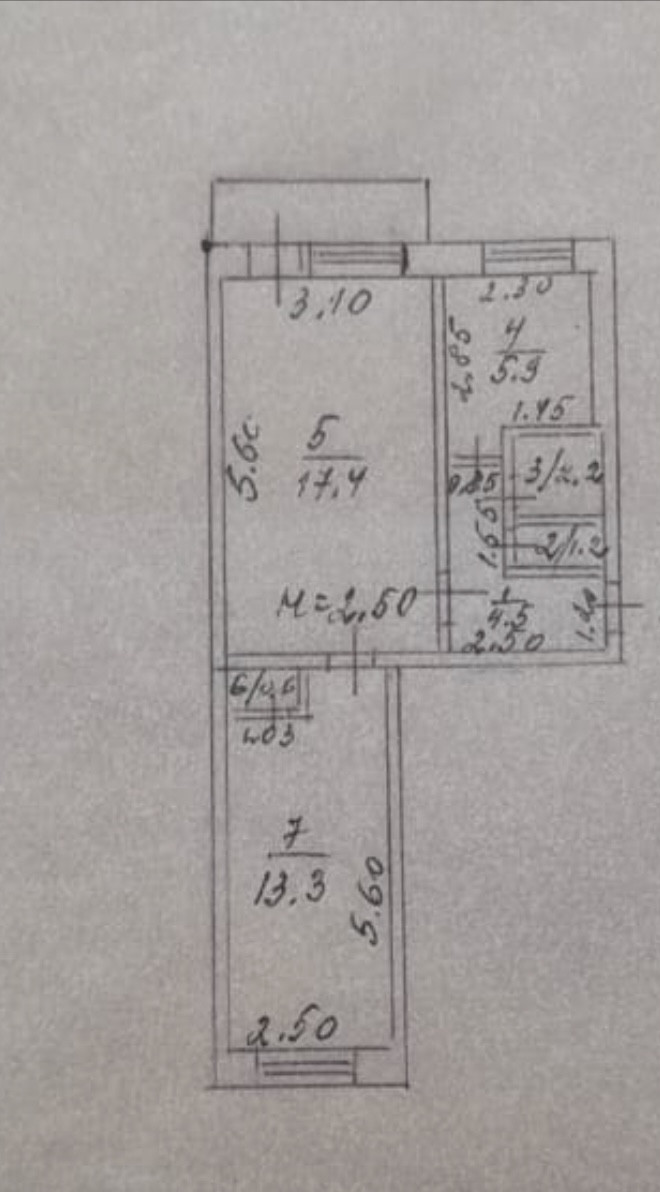 2.30
3.10
4
5.9
2.85
1.45
5.60
5
17.4
3/2.2
0.85
1.55
2/1.2
н=2.50
1
4.5
2.50
6/0.6
1.03
7
13.3
5.60
2.50